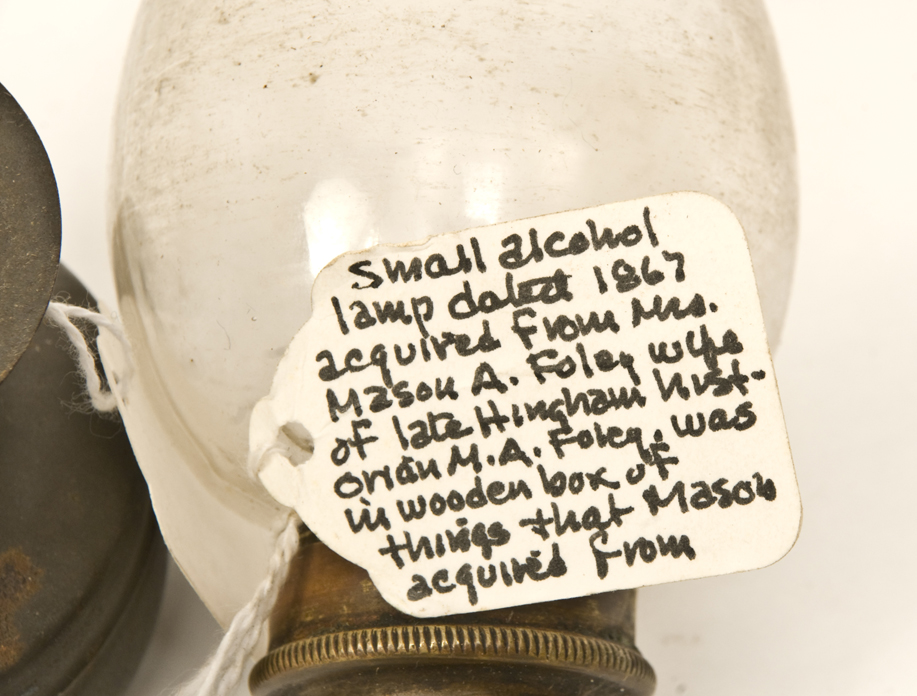 Small alcohol
lamp dated 1867
acquired from Mrs.
Mason A. Foley wife
of late Hingham hist-
orian M.A. Foley. was
in wooden box of
things that Mason
acquired from